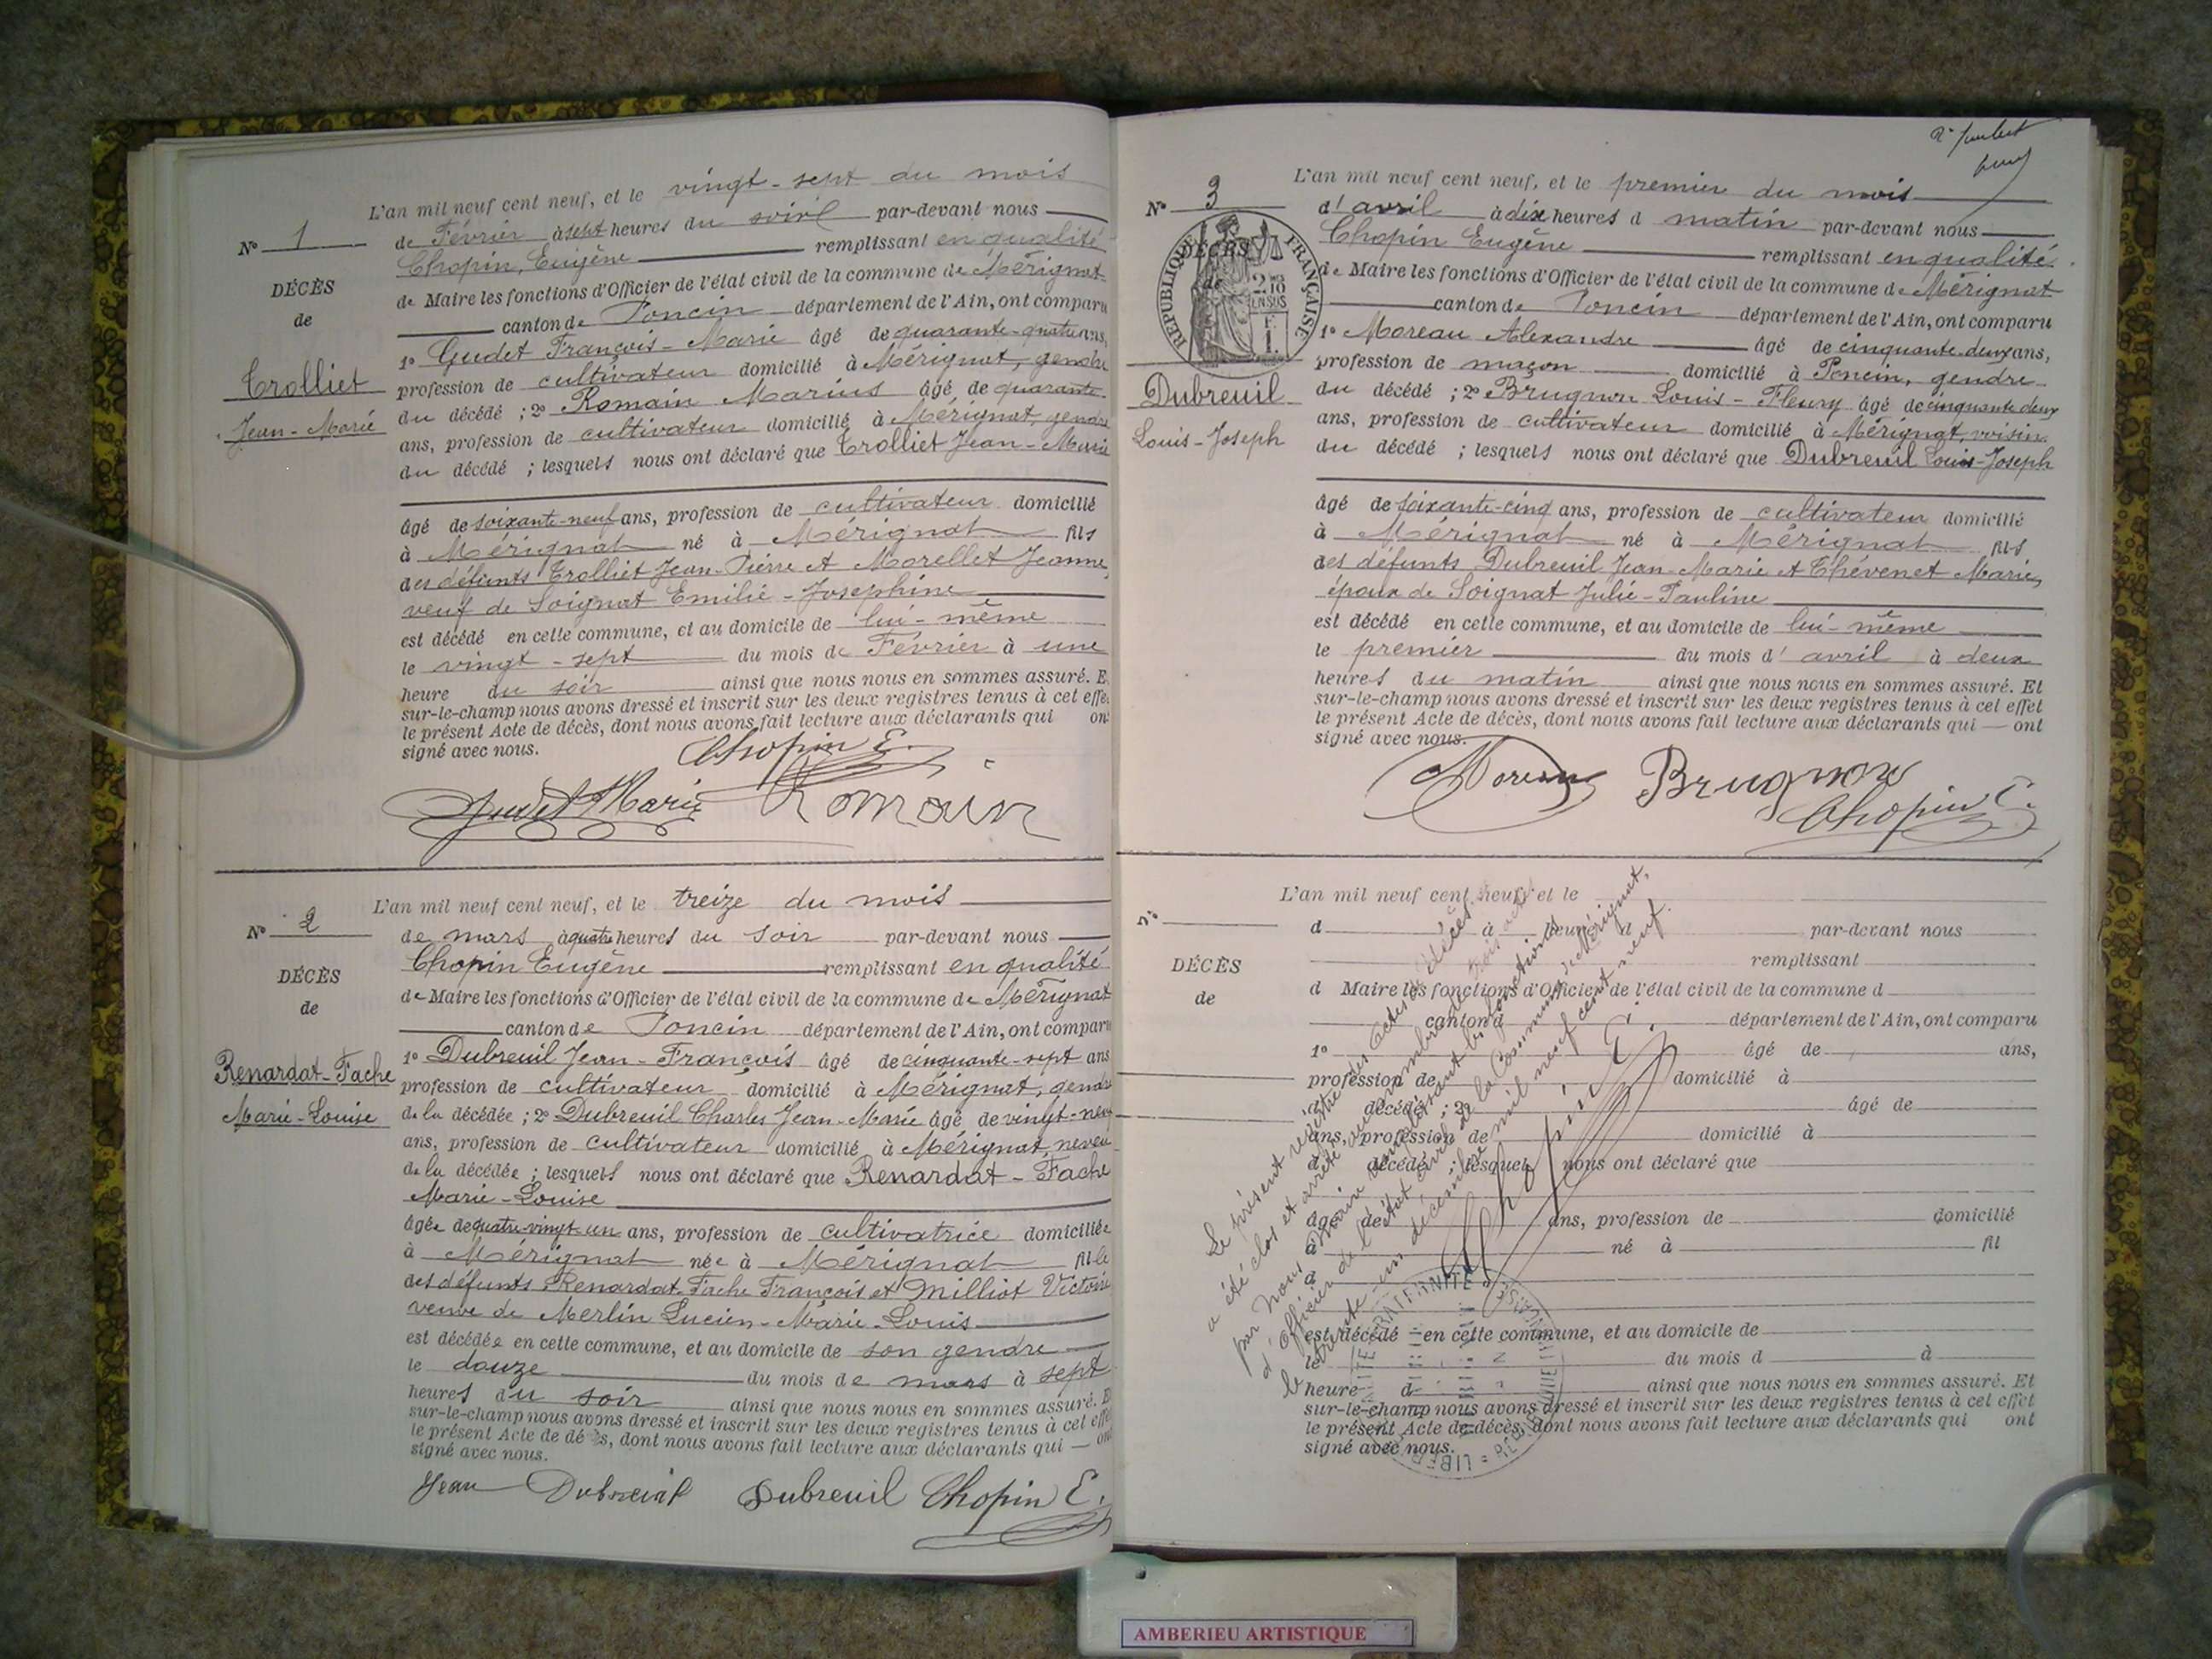 L'an mil neuf cent neuf, et le vingt-sept du mois
de Février à sept heures du soir par-devant nous
Chopin, Eugène remplissant en qualité
de Maire les fonctions d'Officier de l'état civil de la commune de Mérignat
canton de Poncin département de l'Ain, ont comparu
1º Gudet François-Marie âgé de quarante-quatre ans,
profession de cultivateur domicilié à Mérignat, gendre
du décédé ; 2º Romain Marius âgé de quarante
ans, profession de cultivateur domicilié à Mérignat, gendre
du décédé ; lesquels nous ont déclaré que Trolliet Jean-Marie
âgé de soixante-neuf ans, profession de cultivateur domicilié
à Mérignat né à Mérignat fils
des défunts Trolliet Jean-Pierre et Morellet Jeanne,
veuf de Soignat Emilie-Josephine
est décédé en cette commune, et au domicile de lui-même
le vingt-sept du mois de Février à une
heure du soir ainsi que nous nous en sommes assuré. E
sur-le-champ nous avons dressé et inscrit sur les deux registres tenus à cet effe
le présent Acte de décès, dont nous avons fait lecture aux déclarants qui on
signé avec nous.
Chopin E.
Gudet Marie Romain
Nº 1
DÉCÈS
de
Trolliet
Jean-Marie
L'an mil neuf cent neuf, et le treize du mois
de mars à quatre heures du soir par-devant nous
Chopin Eugène remplissant en qualité
de Maire les fonctions d'Officier de l'état civil de la commune de Mérignat
canton de Poncin département de l'Ain, ont comparu
1º Dubreuil Jean-François âgé de cinquante-sept ans
profession de cultivateur domicilié à Mérignat, gendre
de la décédée ; 2º Dubreuil Charles Jean-Marie âgé de vingt-neuf
ans, profession de cultivateur domicilié à Mérignat, neveu
de la décédée ; lesquels nous ont déclaré que Renardat-Fache
Marie-Louise
âgée de quatre-vingt-un ans, profession de cultivatrice domiciliée
à Mérignat née à Mérignat fille
des défunts Renardat-Fache François et Milliot Victoire
veuve de Merlin Lucien-Marie-Louis
est décédée en cette commune, et au domicile de son gendre
le douze du mois de mars à sept
heures du soir ainsi que nous nous en sommes assuré. E
sur-le-champ nous avons dressé et inscrit sur les deux registres tenus à cet effe
le présent Acte de décès, dont nous avons fait lecture aux déclarants qui — on
signé avec nous.
Jean Dubreuil Dubreuil Chopin E.
Nº 2
DÉCÈS
de
Renardat-Fache
Marie-Louise
L'an mil neuf cent neuf, et le premier du mois
d'avril à dix heures d matin par-devant nous
Chopin Eugène remplissant en qualité
de Maire les fonctions d'Officier de l'état civil de la commune de Mérignat
canton de Poncin département de l'Ain, ont comparu
1º Moreau Alexandre âgé de cinquante-deux ans,
profession de maçon domicilié à Poncin, gendre
du décédé ; 2º Brugnon Louis-Fleury âgé de cinquante deux
ans, profession de cultivateur domicilié à Mérignat, voisin
du décédé ; lesquels nous ont déclaré que Dubreuil Louis-Joseph
âgé de soixante-cinq ans, profession de cultivateur domicilié
à Mérignat né à Mérignat fils
des défunts Dubreuil Jean-Marie et Thévenet Marie,
époux de Soignat Julie-Pauline
est décédé en cette commune, et au domicile de lui-même
le premier du mois d'avril à deux
heures du matin ainsi que nous nous en sommes assuré. Et
sur-le-champ nous avons dressé et inscrit sur les deux registres tenus à cet effet
le présent Acte de décès, dont nous avons fait lecture aux déclarants qui — ont
signé avec nous.
Moreau Brugnon
Chopin E.
Nº 3
DÉCÈS
de
RÉPUBLIQUE FRANÇAISE
Dubreuil
Louis-Joseph
L'an mil neuf cent neuf, et le
d à heure d par-devant nous
remplissant
d Maire les fonctions d'Officier de l'état civil de la commune d
canton d département de l'Ain, ont comparu
1º âgé de ans,
profession de domicilié à
d décédé ; 2º âgé de
ans, profession de domicilié à
d décédé ; lesquels nous ont déclaré que
âgé de ans, profession de domicilié
à né à fil
d
est décédé en cette commune, et au domicile de
le du mois d à
heure d ainsi que nous nous en sommes assuré. Et
sur-le-champ nous avons dressé et inscrit sur les deux registres tenus à cet effet
le présent Acte de décès, dont nous avons fait lecture aux déclarants qui ont
signé avec nous.
Nº
DÉCÈS
de
Le présent registre des actes de décès
a été clos et arrêté au nombre de trois actes
par nous Maire remplissant les fonctions
d'Officier de l'état civil de la Commune de Mérignat,
le trente-un décembre mil neuf cent neuf.
Chopin E.
AMBERIEU ARTISTIQUE